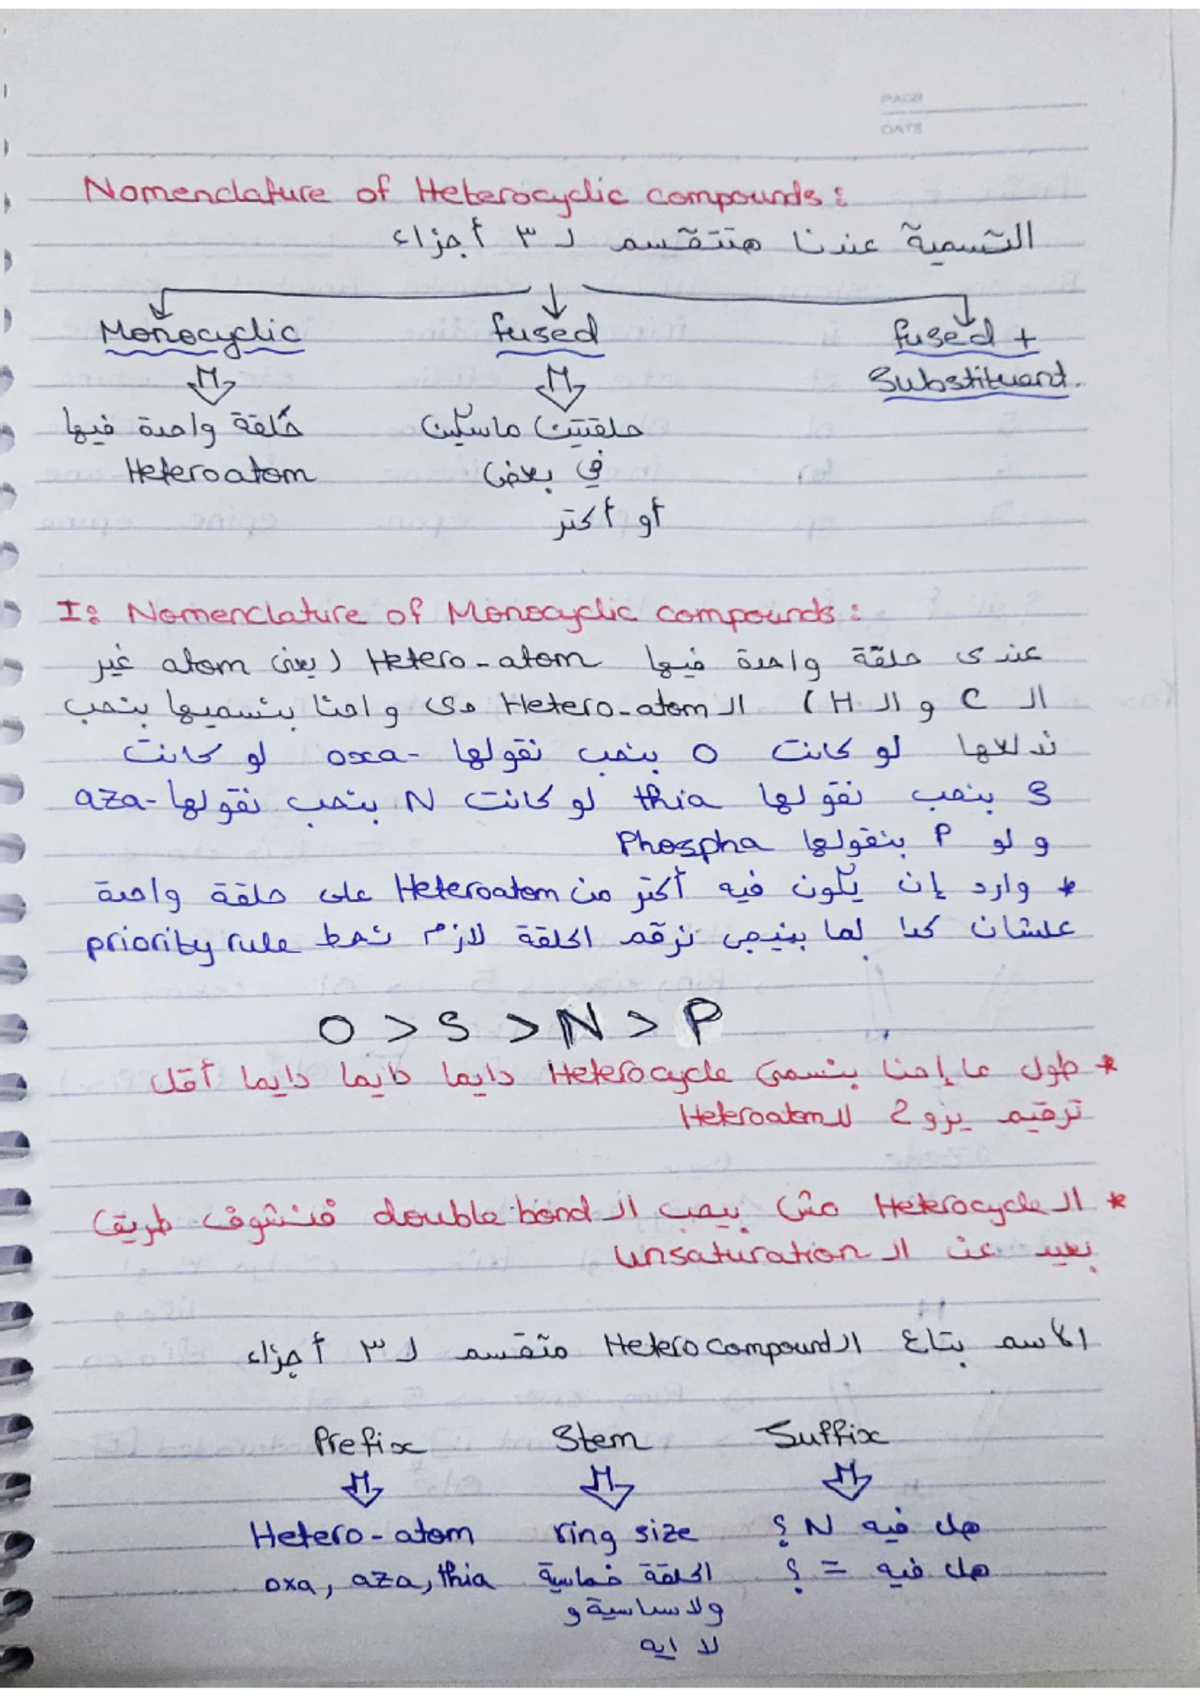 PAGE
DATE
Nomenclature of Heterocyclic compounds:
التسمية عندنا هتتقسم لـ ٣ أجزاء
Monocyclic fused fused +
Substituant.
حلقة واحدة فيها حلقتين ماسكين
Heteroatom في بعض
أو أكتر
I: Nomenclature of Monocyclic compounds:
عندى حلقة واحدة فيها Hetero-atom (يعنى atom غير
الـ C و الـ H) الـ Hetero-atom دى واحنا بنسميها بنحب
ندلعها لو كانت O بنحب نقولها oxa- لو كانت
S بنحب نقولها thia لو كانت N بنحب نقولها aza-
و لو P بنقولها Phospha
* وارد إن يكون فيه أكتر من Heteroatom على حلقة واحدة
علشان كدا لما بنيجى نرقم الحلقة لازم نحط priority rule
O > S > N > P
* طول ما إحنا بنسمى Heterocycle دايما دايما دايما أقل
ترقيم يروح للـ Heteroatom
* الـ Heterocycle مش بيحب الـ double bond فنشوف طريق
بعيد عن الـ unsaturation
الاسم بتاع الـ Hetero compound متقسم لـ ٣ أجزاء
Prefix Stem Suffix
Hetero-atom ring size هل فيه N ؟
oxa, aza, thia الحلقة خماسية هل فيه = ؟
ولا سداسية و
لا ايه